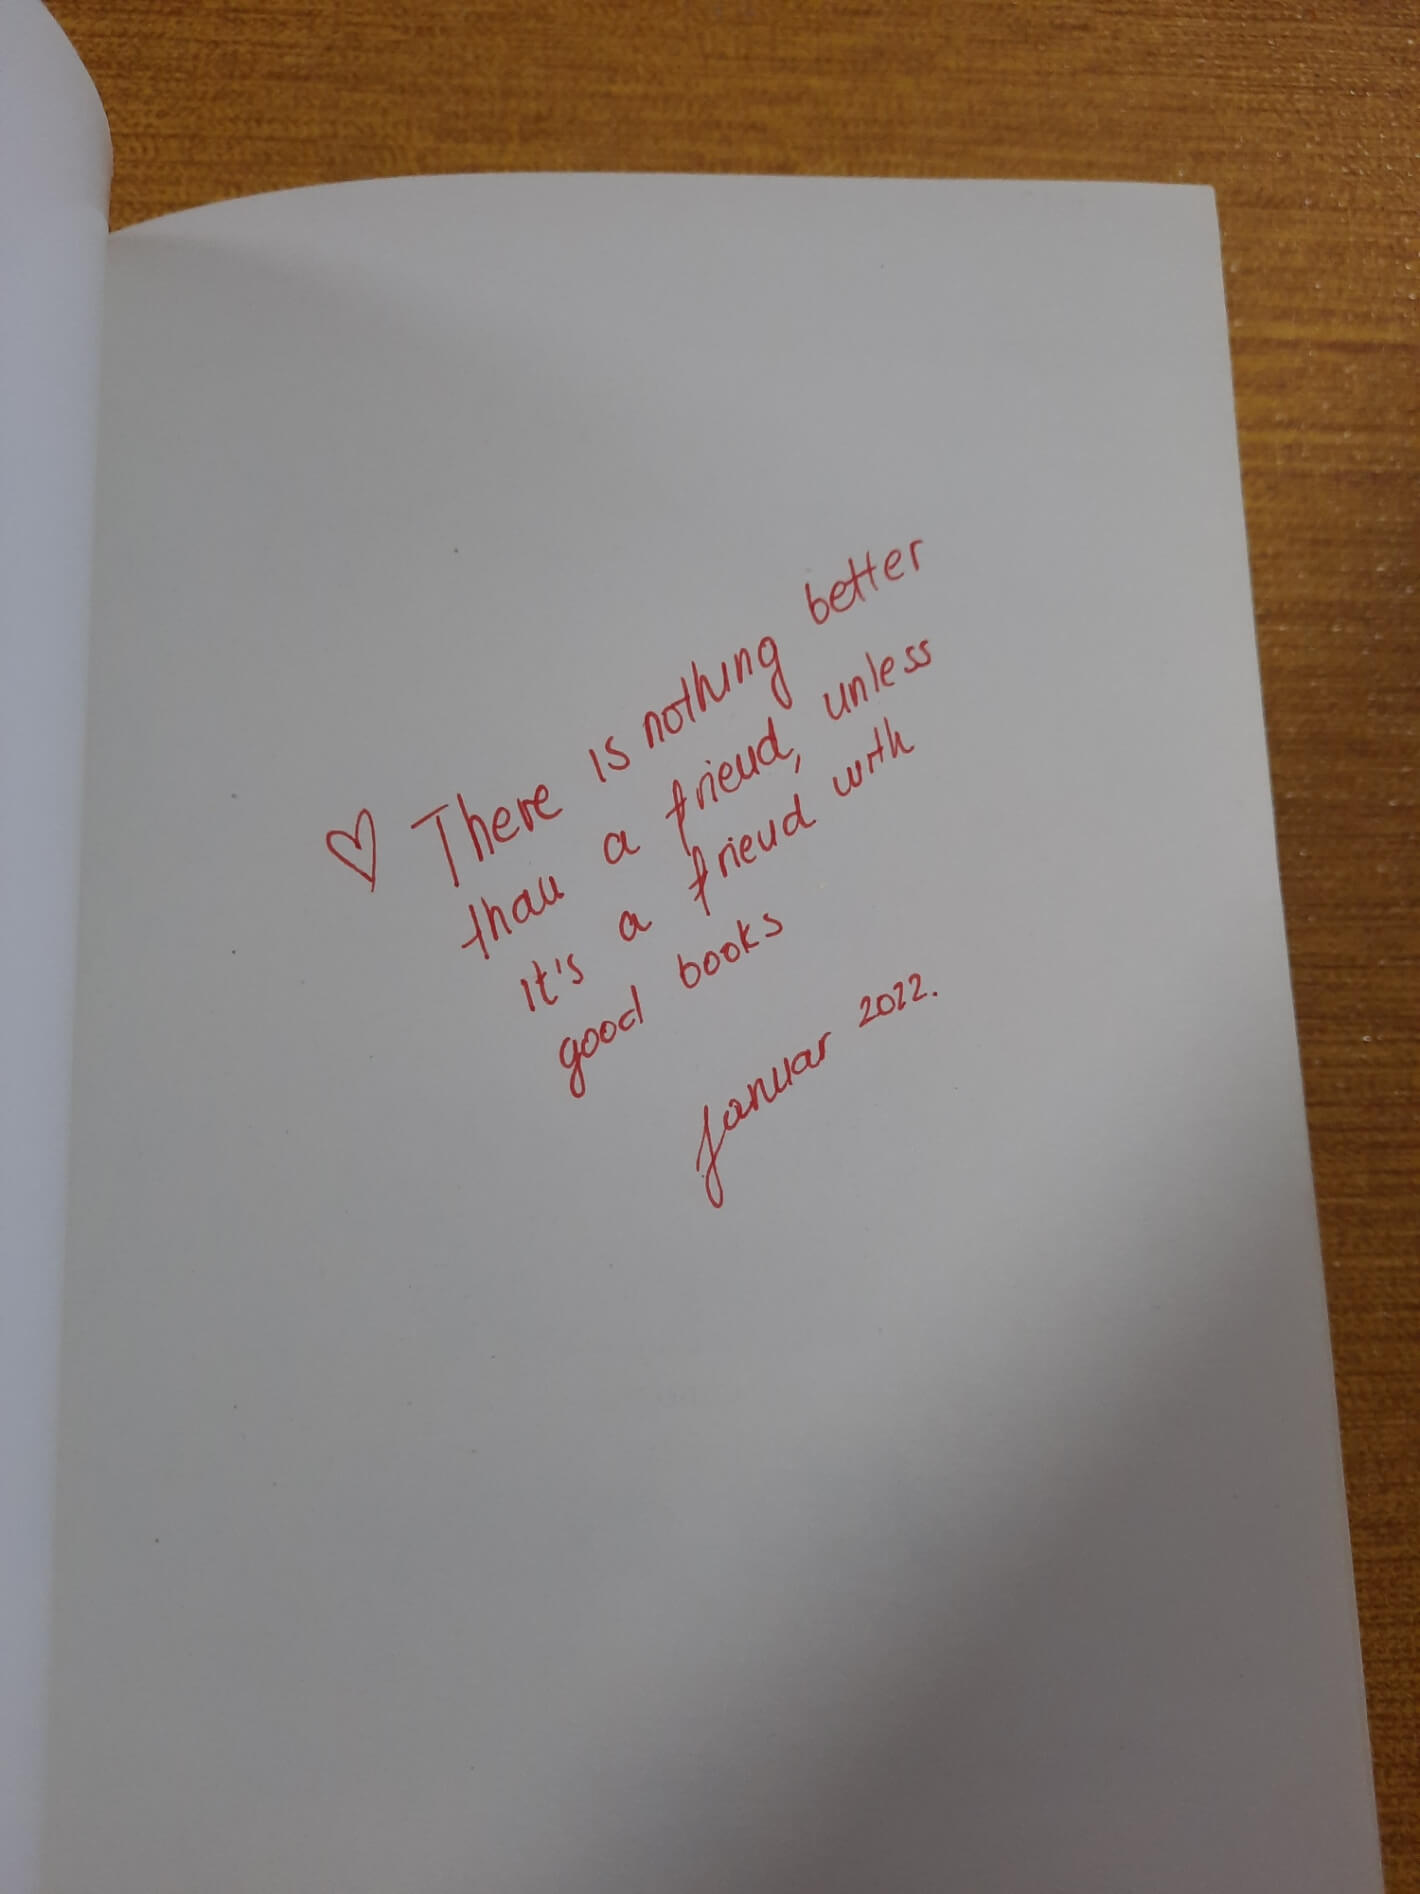 ♡ There is nothing better
than a friend, unless
it's a friend with
good books
Januar 2022.